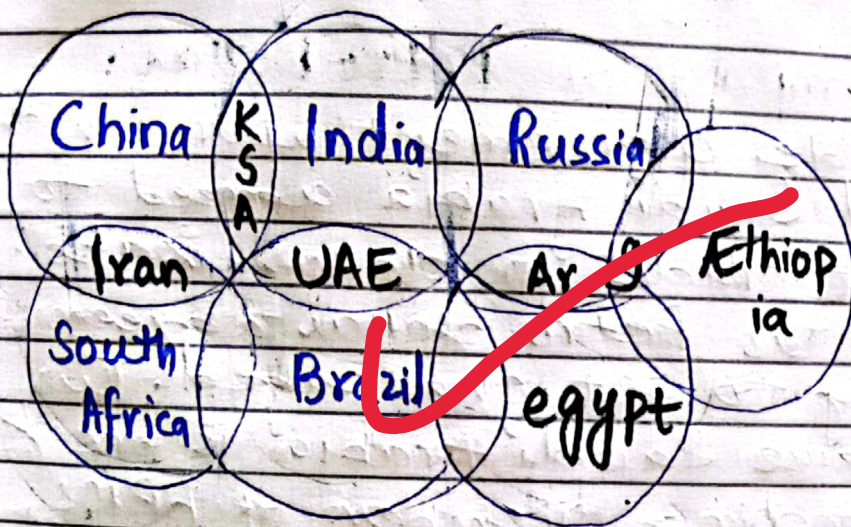 China
K
S
A
India
Russia
Iran
UAE
Ar g
Æthiop
ia
South
Africa
Brazil
egypt